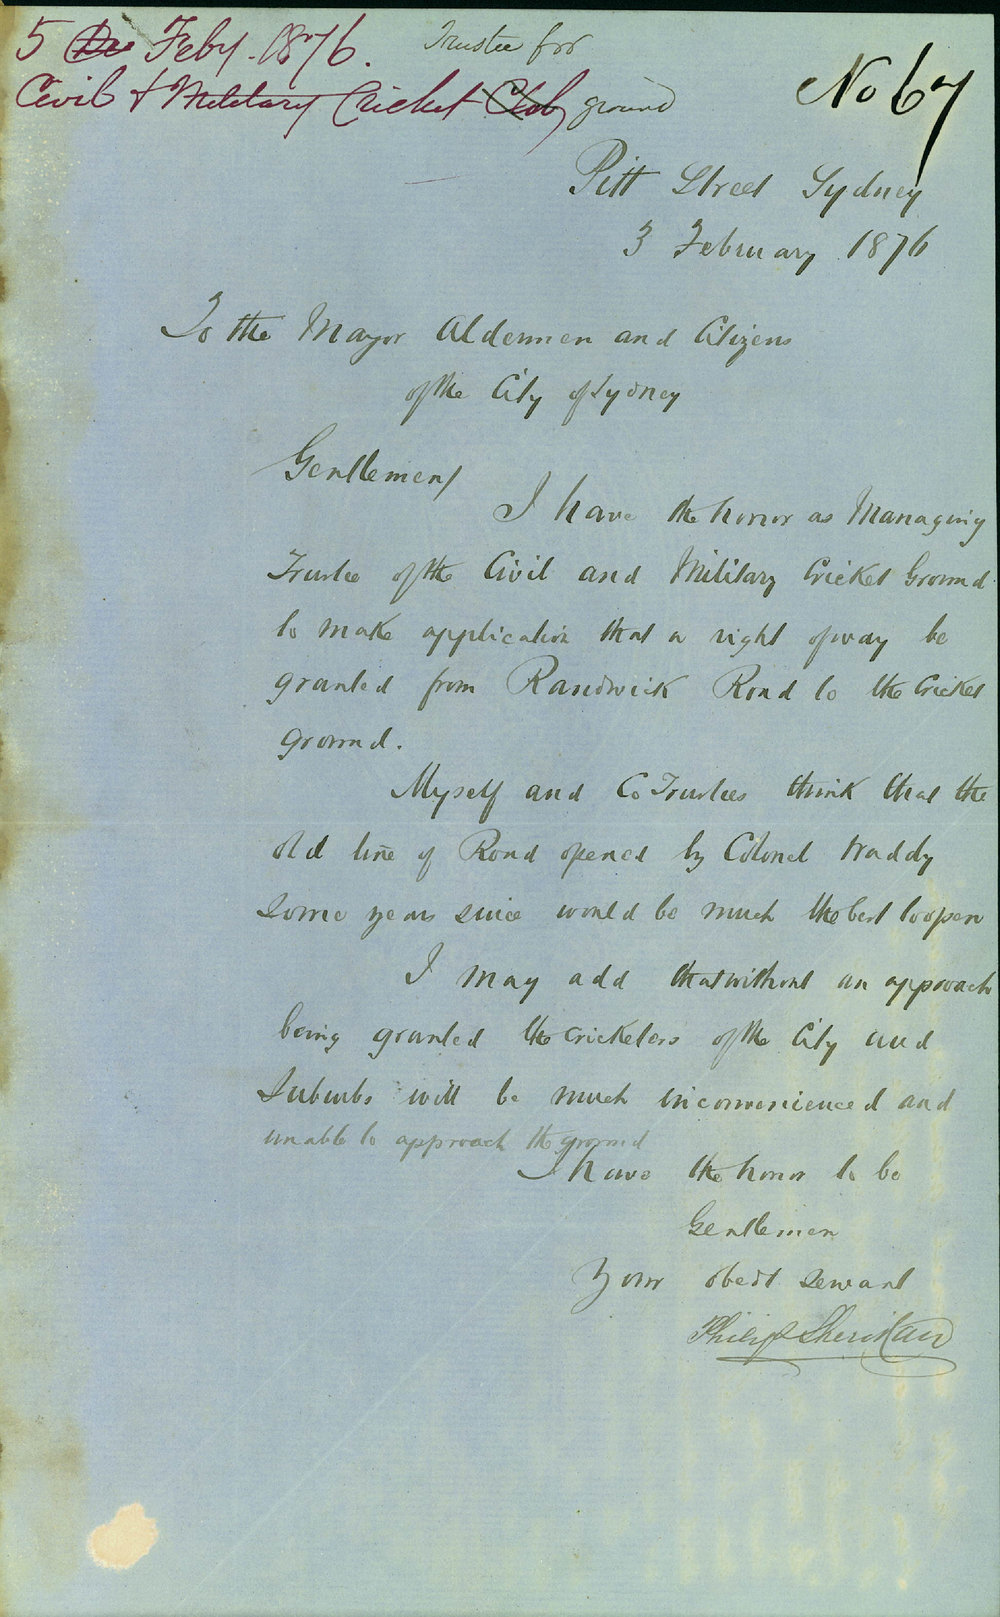 5 Feby. 1876. Trustee for
Civil & Military Cricket Club ground
No 67
Pitt Street Sydney
3 February 1876
To the Mayor Aldermen and Citizens
of the City of Sydney
Gentlemen/
I have the honor as Managing
Trustee of the Civil and Military Cricket Ground
to make application that a right of way be
granted from Randwick Road to the Cricket
ground.
Myself and Co Trustees think that the
old line of Road opened by Colonel Waddy
some years since would be much the best to open
I may add that without an approach
being granted the cricketers of the City and
Suburbs will be much inconvenienced and
unable to approach the ground
I have the honor to be
Gentlemen
Your obedt servant
Philip Sheridan